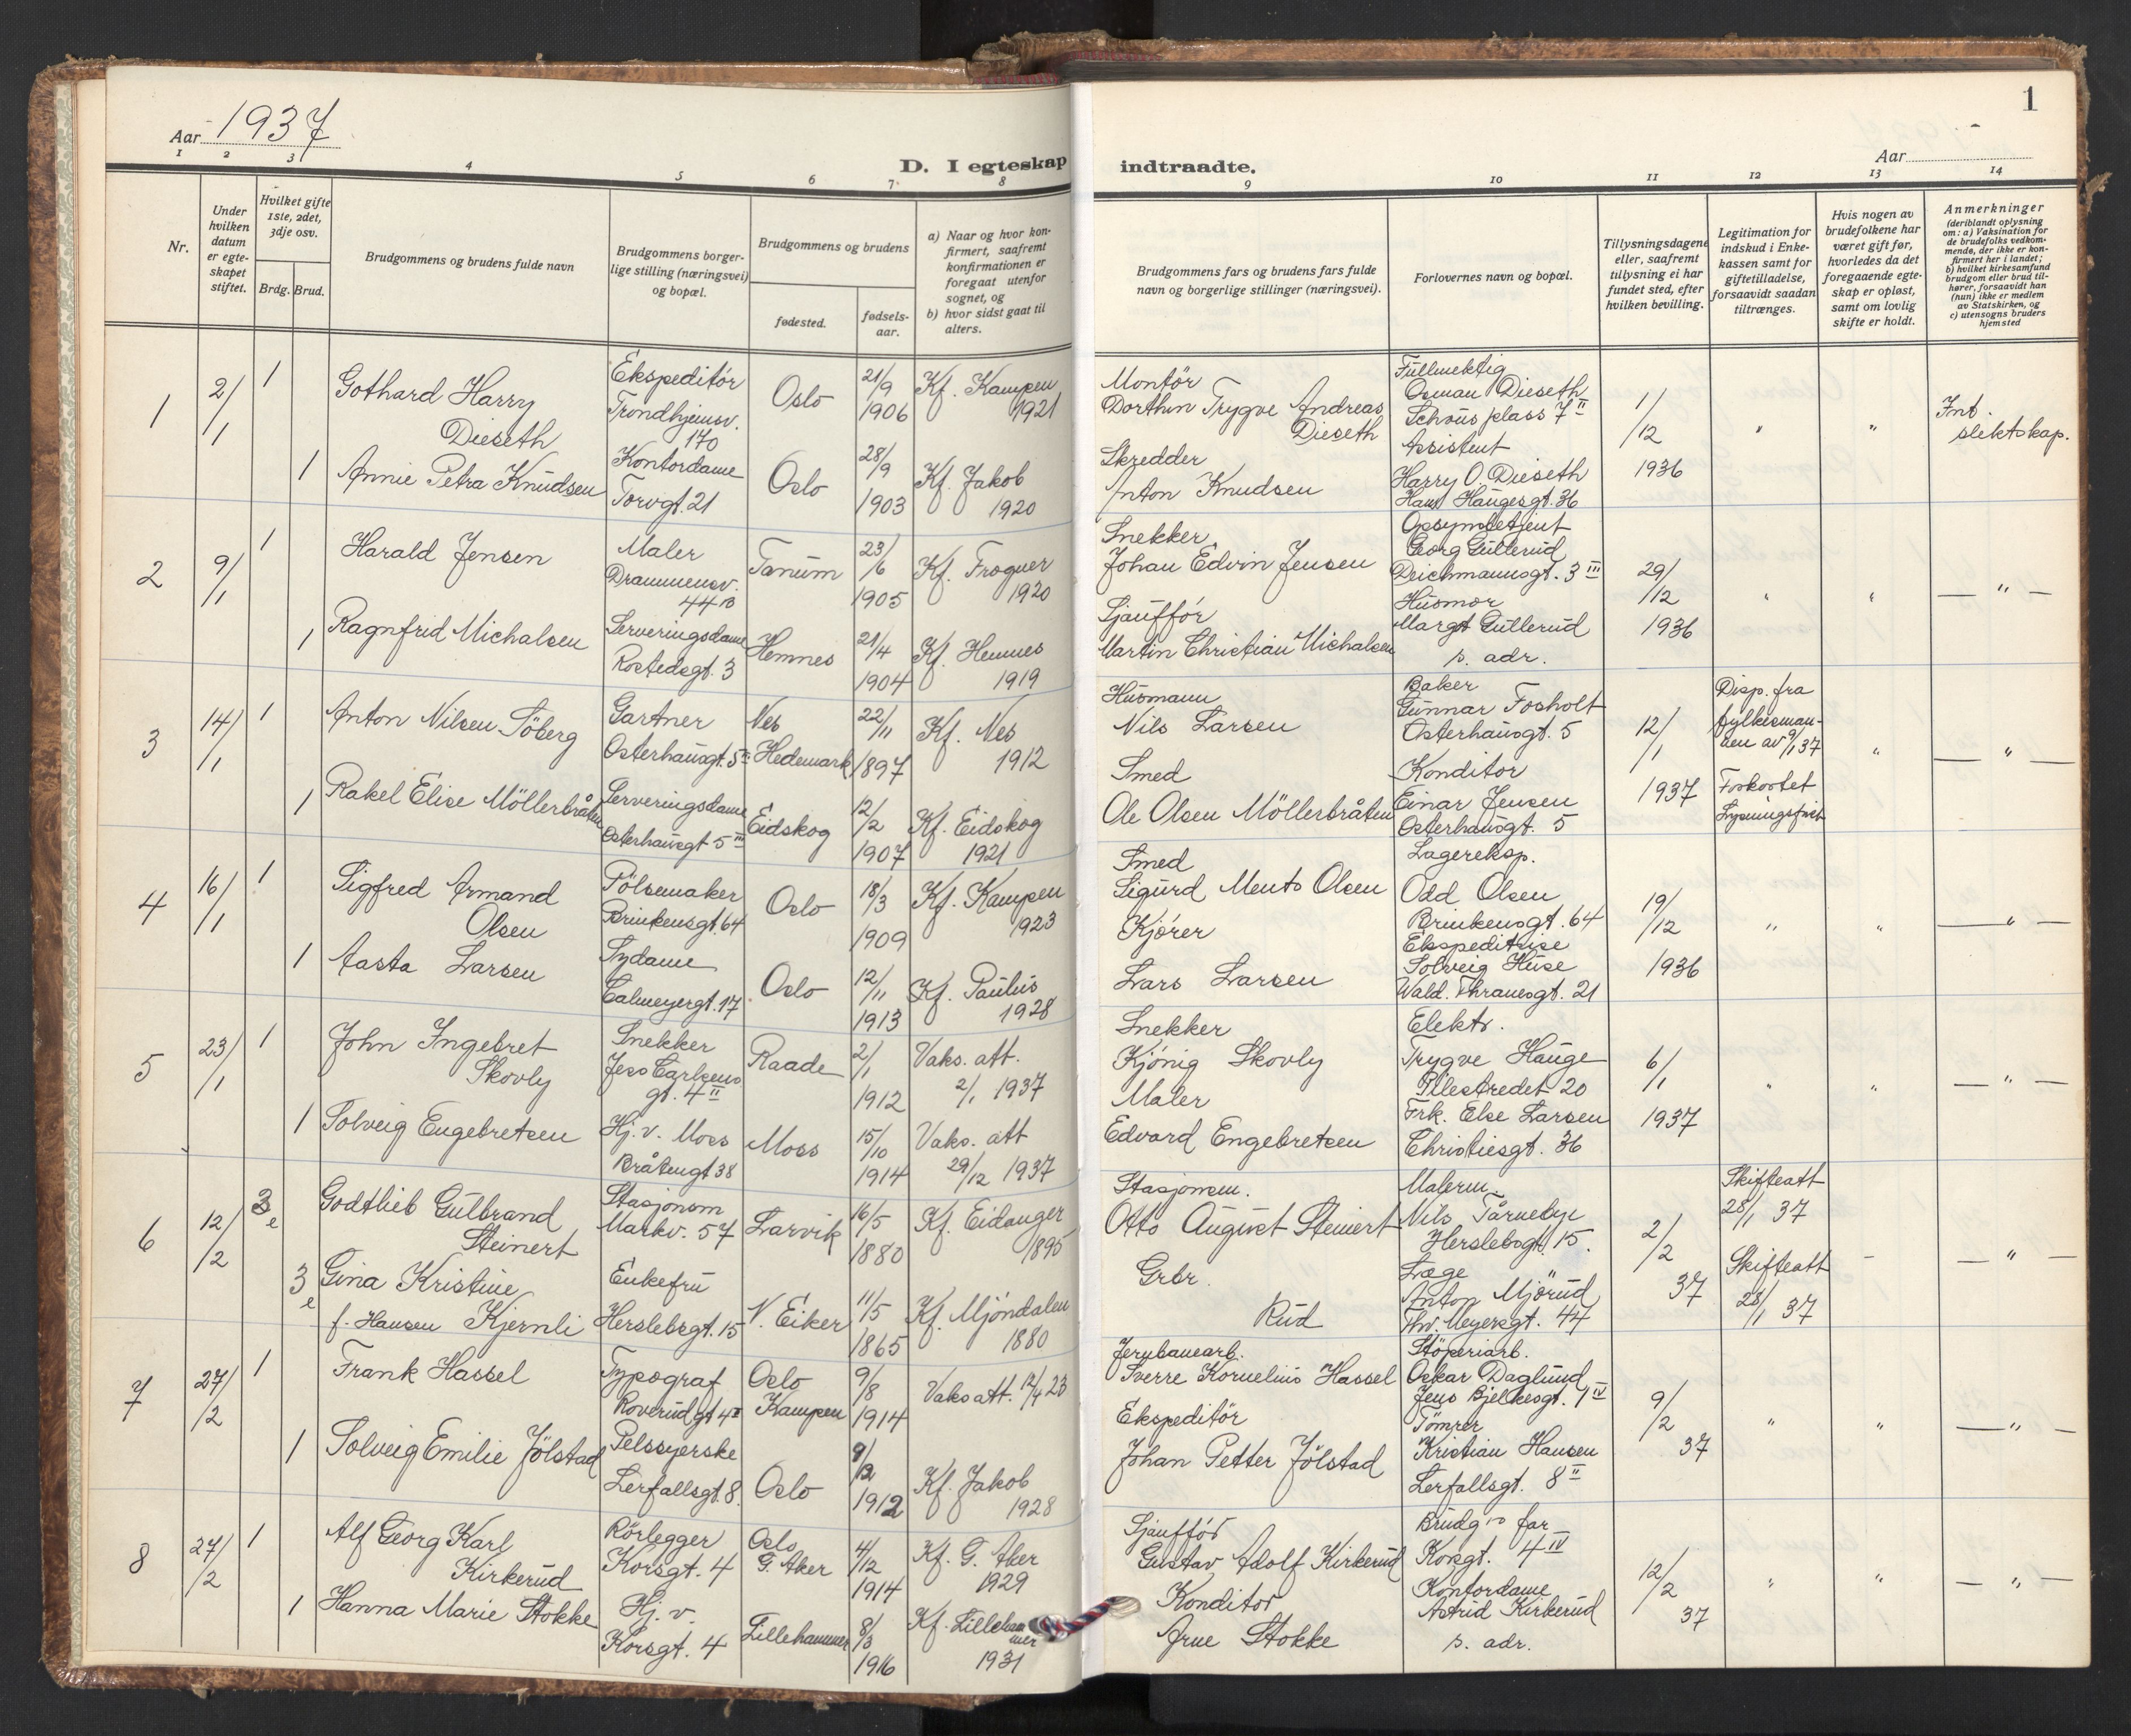 Aar 1937
D. I egteskap
1 2 3 4 5 6 7 8
Nr.
Under hvilken datum er egteskapet stiftet.
Hvilket gifte 1ste, 2det, 3dje osv.
Brdg. Brud.
Brudgommens og brudens fulde navn
Brudgommens borgerlige stilling (næringsvei) og bopæl.
Brudgommens og brudens
fødested.
fødselsaar.
a) Naar og hvor konfirmert, saafremt konfirmationen er foregaat utenfor sognet, og
b) hvor sidst gaat til alters.
1
2/1
1
Gothard Harry
Dieseth
Ekspeditör
Trondhjemsv.
170
Oslo
21/9
1906
Kf. Kampen
1921
1
Annie Petra Knudsen
Kontordame
Torvgt. 21
Oslo
28/9
1903
Kf. Jakob
1920
2
9/1
1
Harald Jensen
Maler
Drammensv.
44 B
Tanum
23/6
1905
Kf. Frogner
1920
1
Ragnfrid Michalsen
Serveringsdame
Rostedsgt. 3
Hemnes
21/4
1904
Kf. Hemnes
1919
3
14/1
1
Anton Nilsen Söberg
Gartner
Osterhausgt. 5 III
Nes
Hedemark
22/11
1897
Kf. Nes
1912
1
Rakel Elise Möllerbråten
Serveringsdame
Osterhausgt 5 III
Eidskog
12/2
1907
Kf. Eidskog
1921
4
16/1
1
Sigfred Armand
Olsen
Pölsemaker
Brinkensgt. 64
Oslo
18/3
1909
Kf. Kampen
1923
1
Aasta Larsen
Sydame
Calmeyergt. 17
Oslo
12/11
1913
Kf. Paulus
1928
5
23/1
1
John Ingebret
Skovly
Snekker
Jess Carlsens
gt. 4 II
Raade
2/1
1912
Vaks. att.
2/1 1937
1
Solveig Engebretsen
Hj. v. Moss
Bråtengt 38
Moss
15/10
1914
Vaks. att
29/12 1937
6
12/2
3 e
Godtlieb Gulbrand
Steinert
Stasjonsm
Markv. 57
Larvik
16/5
1880
Kf. Eidanger
1895
3 e
Gina Kristine
f. Hansen Kjernli
Enkefru
Herslebsgt. 15
N. Eiker
11/5
1865
Kf. Mjöndalen
1880
7
27/2
1
Frank Hassel
Typograf
Roverudgt 4 II
Oslo
Kampen
9/8
1914
Vaks att. 12/4 23
1
Solveig Emilie Jölstad
Pelssyerske
Lerfallsgt. 8.
Oslo
9/12
1912
Kf. Jakob
1928
8
27/2
1
Alf Georg Karl
Kirkerud
Rörlegger
Korsgt. 4
Oslo
G. Aker
4/12
1914
Kf. G. Aker
1929
1
Hanna Marie Stokke
Hj. v.
Korsgt. 4
Lillehammer
8/3
1916
Kf. Lilleham
mer
1931
1
Aar
indtraadte.
9 10 11 12 13 14
Brudgommens fars og brudens fars fulde navn og borgerlige stillinger (næringsvei).
Forlovernes navn og bopæl.
Tillysningsdagene eller, saafremt tillysning ei har fundet sted, efter hvilken bevilling.
Legitimation for indskud i Enkekassen samt for giftetilladelse, forsaavidt saadan tiltrænges.
Hvis nogen av brudefolkene har været gift før, hvorledes da det foregaaende egteskap er opløst, samt om lovlig skifte er holdt.
Anmerkninger
(deriblandt oplysning om: a) Vaksination for de brudefolks vedkommende, der ikke er konfirmert her i landet; b) hvilket kirkesamfund brudgom eller brud tilhører, forsaavidt han (hun) ikke er medlem av Statskirken, og c) utensogns bruders hjemsted
Montör
Dorthin Trygve Andreas
Dieseth
Skredder
Anton Knudsen
Fullmektig
Osman Dieseth
Schous plass 7 II
Assistent
Harry O. Dieseth
Hans Haugesgt. 36
1/12
1936
" "
Int.
slektskap.
Snekker
Johan Edvin Jensen
Sjauffør
Martin Christian Michalsen
Opsynsbetjent
Georg Gullerud
Deichmannsgt. 3 III
Husmor
Margot Gullerud
s. adr.
29/12
1936
" " — " —
Husmann
Nils Larsen
Smed
Ole Olsen Möllerbråten
Baker
Gunnar Fosholt
Osterhausgt. 5
Konditor
Einar Jensen
Osterhausgt. 5
12/1
1937
Disp. fra
fylkesman-
nen av 9/1 37
Forkortet
lysningsfrist
" — " —
Smed
Sigurd Ments Olsen
Kjörer
Lars Larsen
Lagereksp.
Odd Olsen
Brinkensgt. 64
Ekspeditrise
Solveig Huse
Wald. Thranesgt. 21
19/12
1936
" " — " —
Snekker
Kjönig Skovly
Maler
Edvard Engebretsen
Elektr.
Trygve Hauge
Pilestredet 20
Frk. Else Larsen
Christiesgt. 36
6/1
1937
" " — " —
Stasjonsm.
Otto August Steinert
Grbr.
Rud
Malerm.
Nils Tårnebye
Herslebsgt. 15.
Læge
Anton Mjörud
Thv. Meyersgt. 44
2/2
37
Skifteatt
28/1 37
Skifteatt
28/1 37
— — " —
Jernbanearb.
Sverre Kornelius Hassel
Ekspeditör
Johan Petter Jölstad
Stöperiarb.
Oskar Daglund
Jens Bjelkesgt. 1 IV
Tömrer
Kristian Hansen
Lerfallsgt. 8 II
9/2
37
" " — " —
Sjafför
Gustav Adolf Kirkerud
Konditor
Arne Stokke
Brudg's far
Korsgt. 4 IV
Kontordame
Astrid Kirkerud
s. adr.
12/2
37
" " — " —